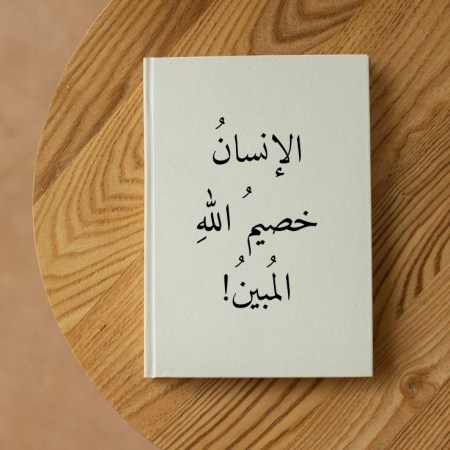 الإنسانُ
خصيمُ اللهِ
المُبينُ!